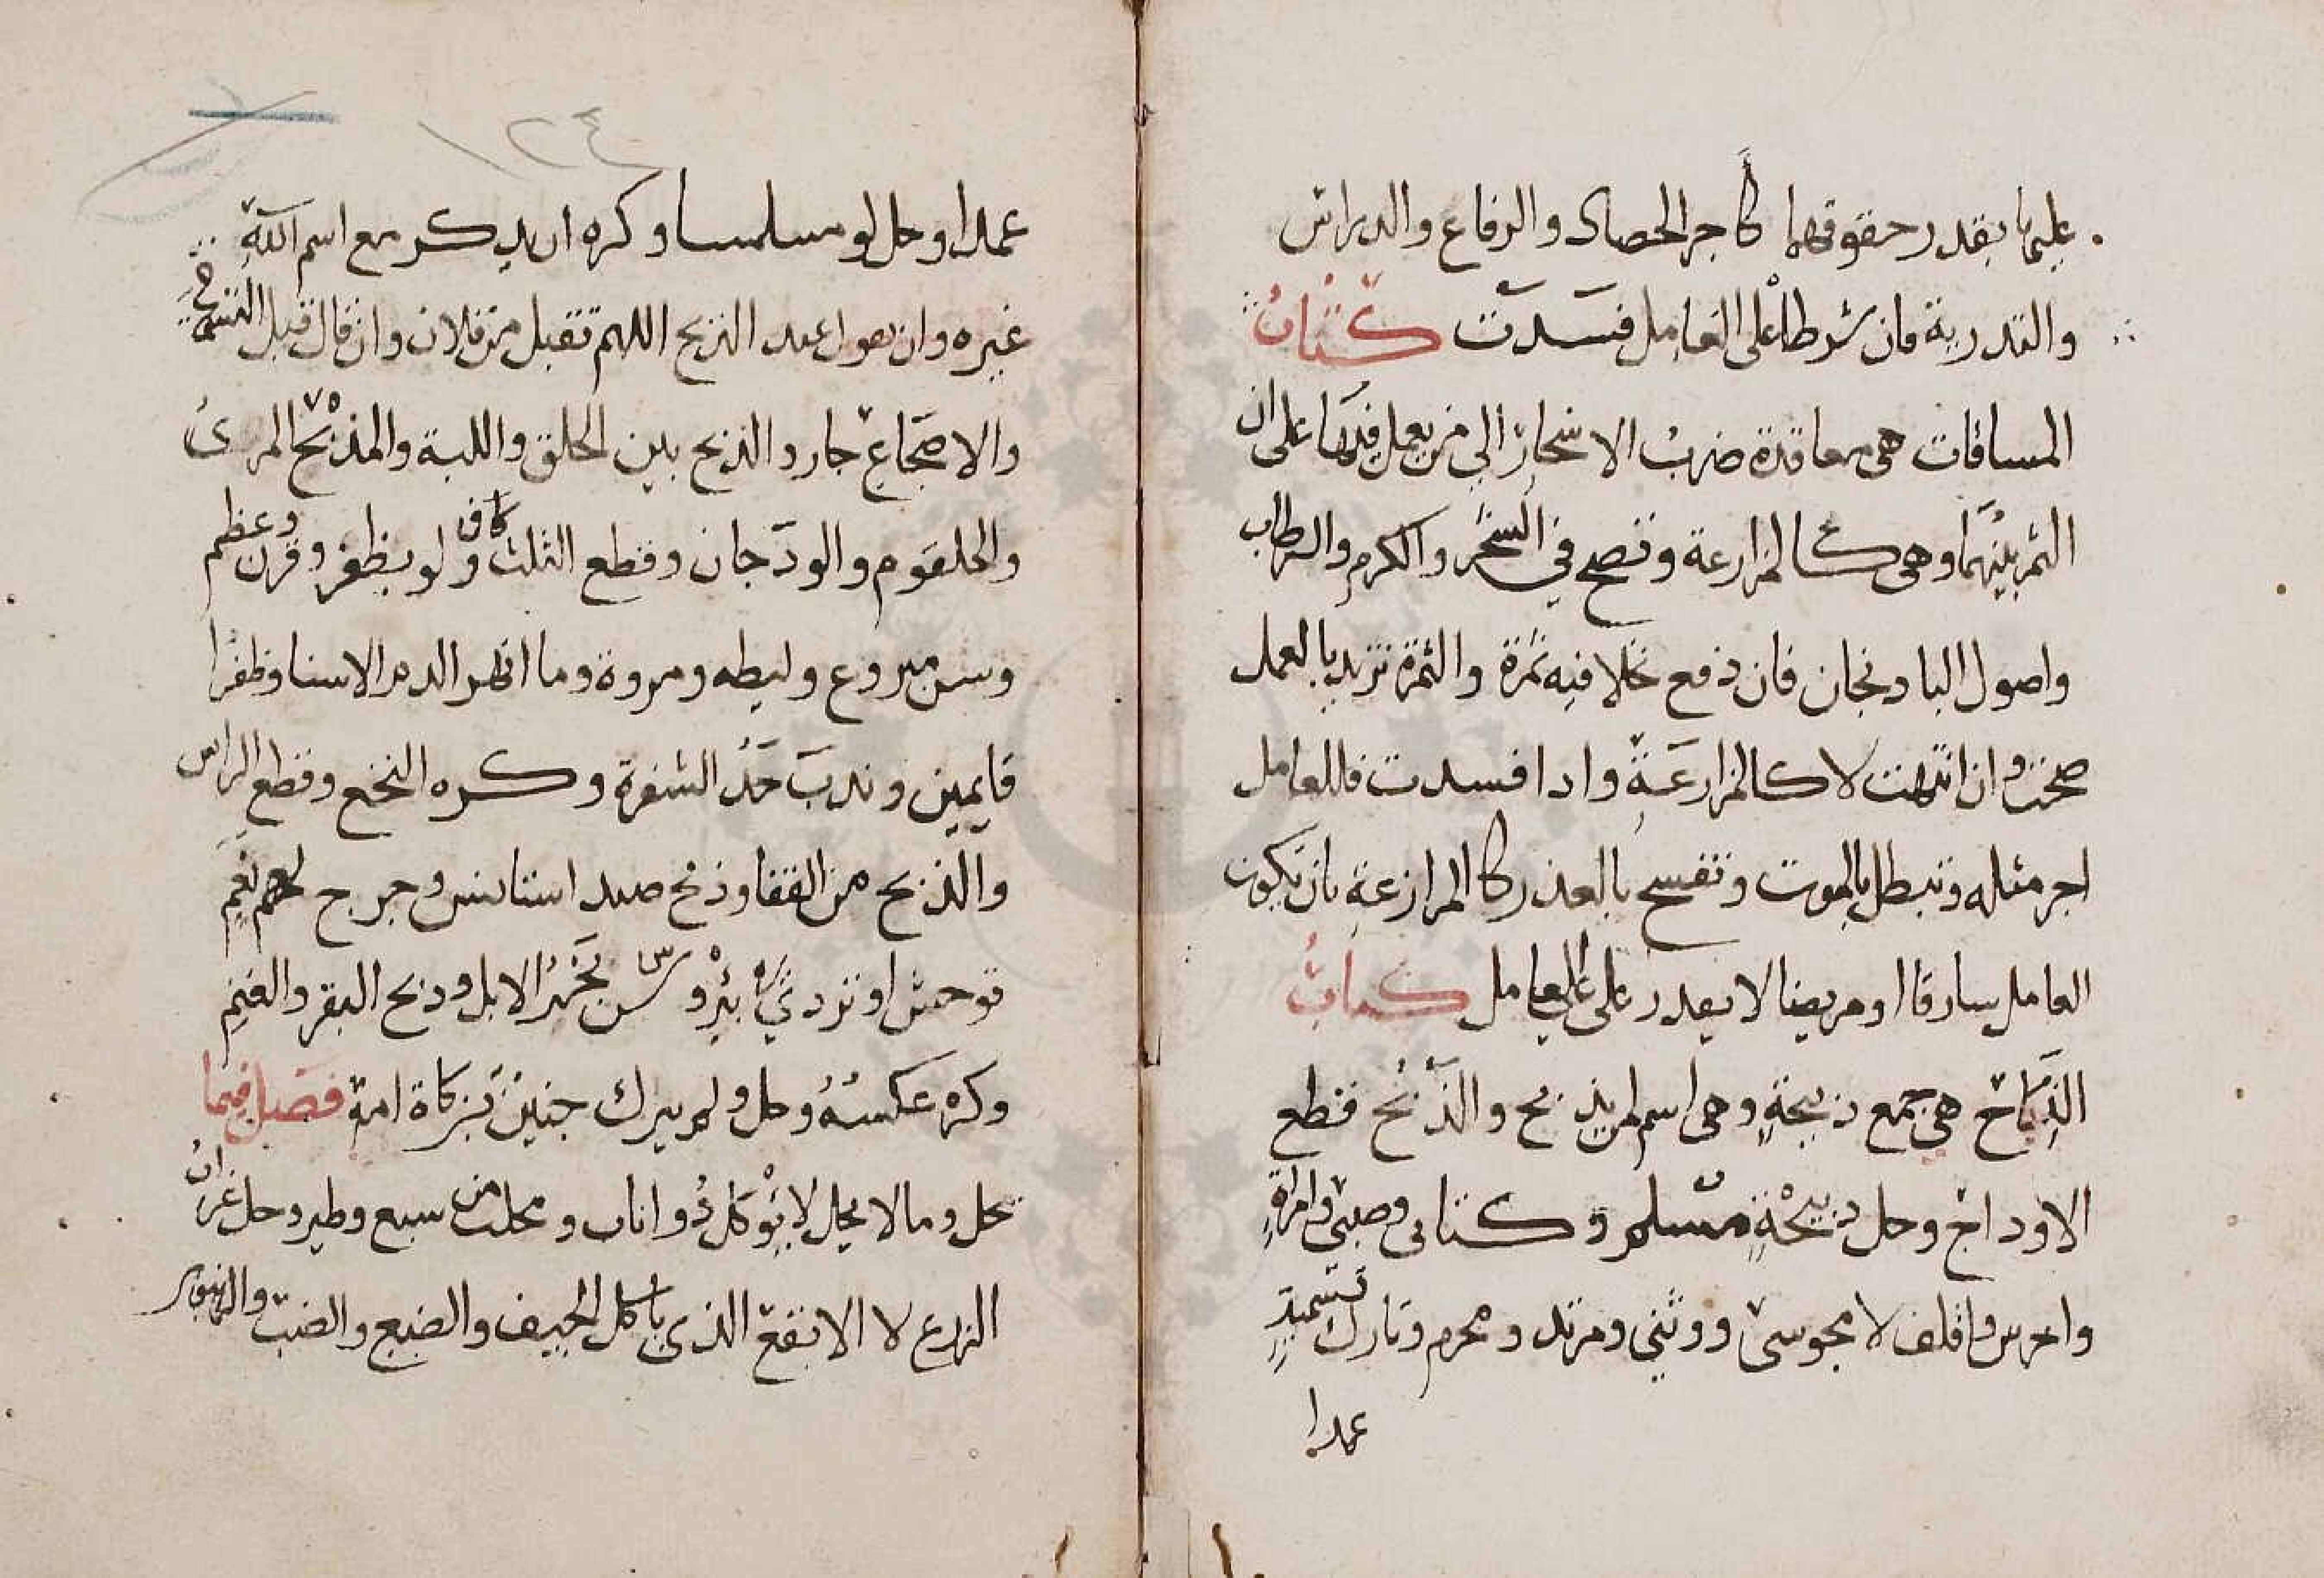 عليهما بقدر حقوقهما كاجر الحصاد والرفاع والدراس
والتدرية فان شرطا على العامل فسدت كتاب
المساقات هى معاقدة ضرب الاشجار الي من يعمل فيها على ان
الثمر بينهما وهى كالمزارعة وتصح في الشجر والكرم والرطاب
واصول البادنجان فان دفع نخلا فيه ثمرة والثمرة تزيد بالعمل
صحت وان انتهت لا كالمزارعة وادا فسدت فللعامل
اجر مثله وتبطل بالموت وتفسح بالعذر كالمرازعة بان يكون
العامل سارقا او مريضا لا يقدر على العمل كتاب
الذبائح هى جمع ذبيحة وهى اسم لما يذبح والذبح قطع
الاوداج وحل ذبيحة مسلم وكتابى وصبي وامراة
واخرس واقلف لا مجوسى ووثني ومرتد ومحرم وتارك تسمية
عمدا
١٢٤
عمدا وحل لو مسلمسا وكره ان يدكر مع اسم الله
غيره وان يقول عند الذبح اللهم تقبل من فلان وان قال قبل التسمية
والاضجاع جاز والذبح بين الحلق واللبة والمذبح المرئ
والحلقوم والودجان وقطع الثلث كاف ولو بظفر وقرن وعظم
وسن منزوع وليطه ومروة وما انهر الدم الا سنا وظفرا
قايمين وندب حد الشفرة وكره النخع وقطع الراس
والذبح من القفا وذبح صيد استانس وجرح نعم
توحش او تردي بئر وسن نحر الابل ودبح البقر والغنم
وكره عكسه وحل ولم يدك جنين بزكاة امه فصل فيما
يحل وما لا يحل لا يؤكل ذو ناب ومخلب من سبع وطير وحل غراب
الزرع لا الابقع الذي ياكل الجيف والضبع والضب والزنبور